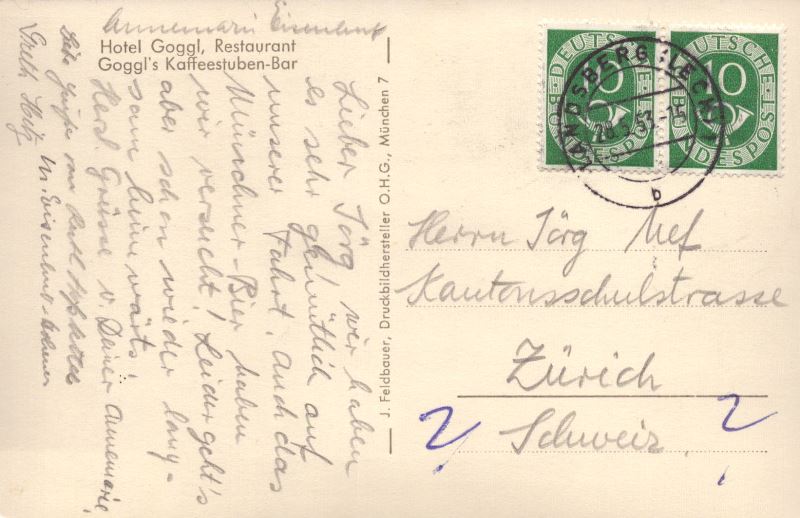 Annemarie Eisenhut
Hotel Goggl, Restaurant
Goggl's Kaffeestuben-Bar
Lieber Jörg, wir haben
es sehr gemütlich auf
unserer Fahrt. Auch das
Münchner-Bier haben
wir versucht! Leider geht's
aber schon wieder lang-
sam heimwärts!
Herzl. Grüsse v. Deiner Annemarie.
Grüsse von
M. Eisenhut
Greth
J. Feldbauer, Druckbildhersteller O.H.G., München 7
DEUTSCHE BUNDESPOST
10
DEUTSCHE BUNDESPOST
10
LANDSBERG (LECH)
28.5.53.-15
b
Herrn Jörg Nef
Kantonsschulstrasse
Zürich
Schweiz
2
2